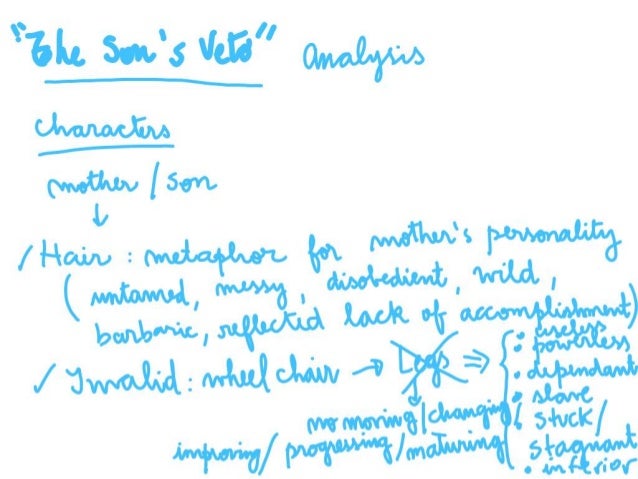 "The Son's Veto" analysis
characters
mother / son
/ Hair : metaphor for mother's personality
( untamed, messy, disobedient, wild,
barbaric, reflected lack of accomplishment)
✓ Invalid : wheel chair → Legs ⇒
• useless
• powerless
• dependant
• slave
no moving / changing / stuck /
improving / progressing / maturing stagnant
• inferior